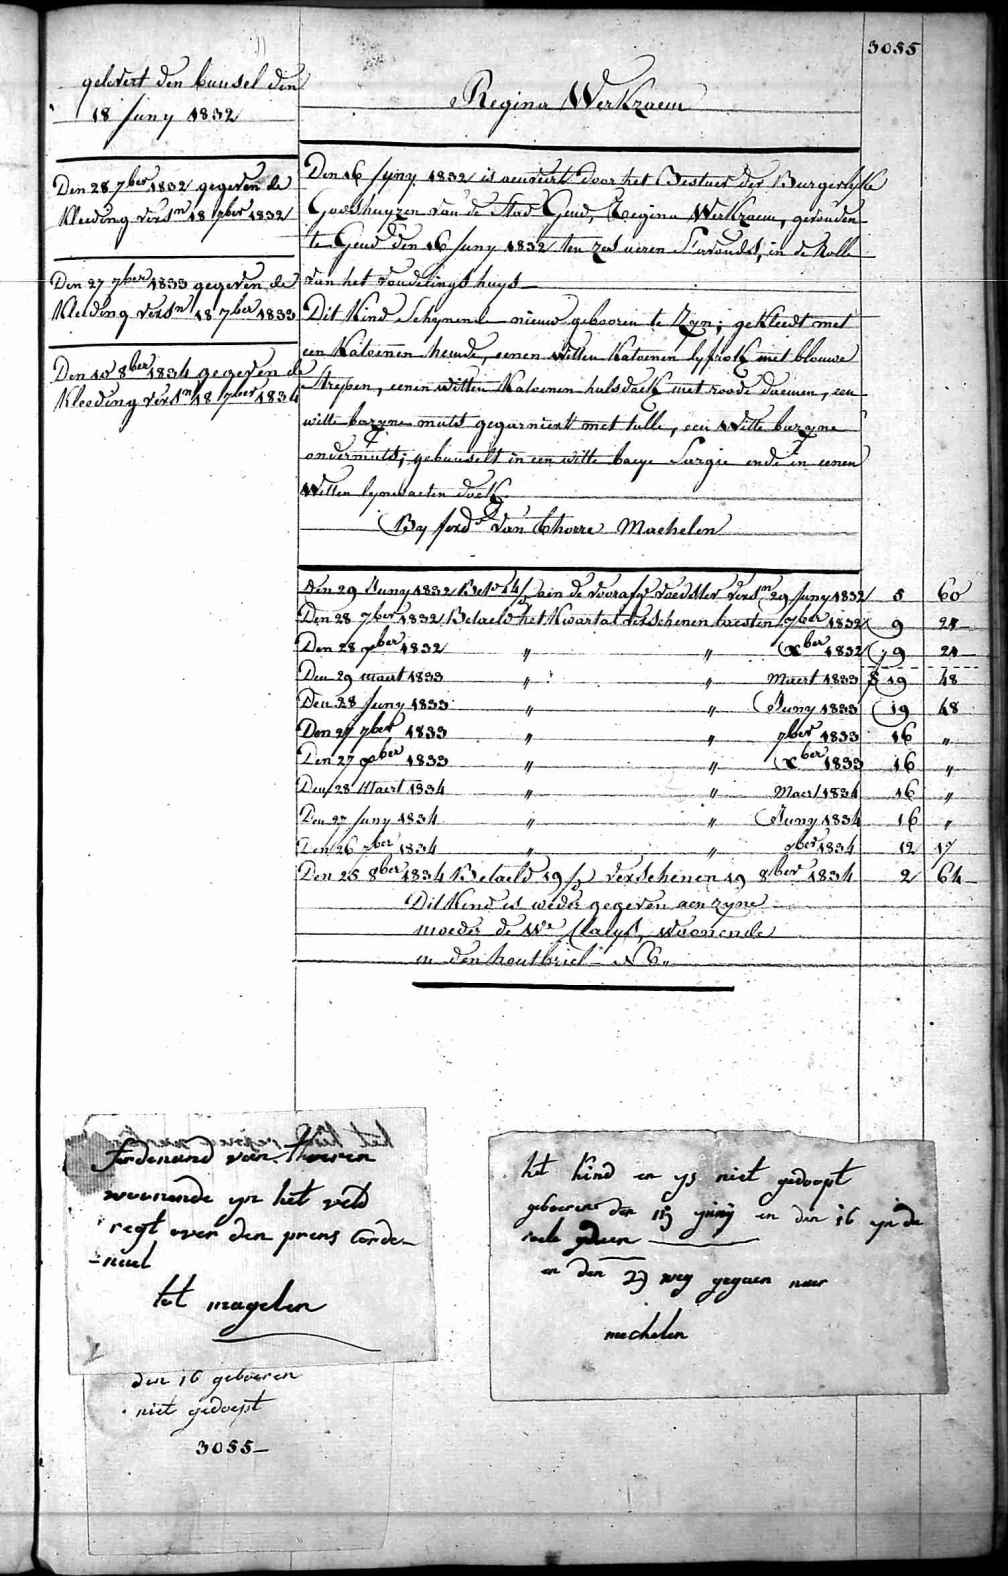 3055
gelevert den bunsel den
18 Juny 1832
Regina Werkzaem
Den 28 7ber 1832 gegeven de
Kleeding versn 18 7ber 1832
Den 27 7ber 1833 gegeven de
Kleeding versn 18 7ber 1833
Den 10 8ber 1834 gegeven de
Kleeding versn 18 7ber 1834
Den 16 Juny 1832 is aenveert door het Bestuer der Burgerlyke
Godshuyzen van de Stad Gend, Regina Werkzaem, gevonden
te Gend den 16 Juny 1832 ten zes uren S'avonds, in de Rolle
van het vondelings huys
Dit Kind Schynende nieuw gebooren te Zyn; gekleedt met
een Katoenen hemde, eenen witten Katoenen lyfrok met blauwe
strepen, eenen witten Katoenen halsdoek met roode daemen, een
witte bazyne muts gegarniert met tulle, een Witte bazyne
ondermuts; gebunselt in een witte baeye Sargie ende in eenen
Witten lynwaeten doek
By ferdd van Thorre Machelen
Den 29 Juny 1832 Bete 14 aen de voorafge voedster versn 29 Juny 1832 5 60
Den 28 7ber 1832 Betaeld het Kwartal verschenen laesten 7ber 1832 9 24
Den 28 xber 1832 " " xber 1832 9 24
Den 29 maert 1833 " " Maert 1833 19 48
Den 28 Juny 1833 " " Juny 1833 19 48
Den 27 7ber 1833 " " 7ber 1833 16 "
Den 27 xber 1833 " " xber 1833 16 "
Den 28 Maert 1834 " " Maert 1834 16 "
Den 27 Juny 1834 " " Juny 1834 16 "
Den 26 7ber 1834 " " 7ber 1834 12 17
Den 25 8ber 1834 Betaeld 19 verschenen 19 8ber 1834 2 64
Dit Kind is weder gegeven aen zyne
moeder de We Claeys, woonende
in den houtbriel N 6
ferdenand van Thoren
woonende yn het veld
regt over den prens Corde-
-nael
tot magelen
den 16 geboeren
niet gedoept
3055
het kind en ys niet gedoopt
geboeren den 15 juny en den 16 yn de
role gedaen
en den 29 weg gegaen naer
mechelen